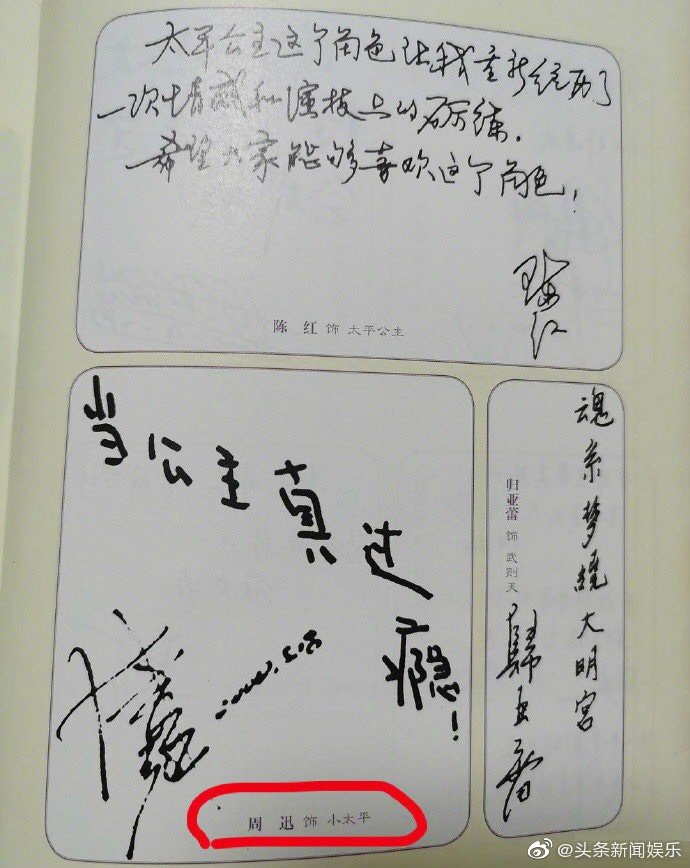 太平公主这个角色让我重新经历了
一次情感和演技上的磨练.
希望大家能够喜欢这个角色!
陈红
陈 红 饰 太平公主
当公主真过瘾!
周 迅 饰 小太平
魂系梦绕大明宫
归亚蕾 饰 武则天
歸亞蕾
@头条新闻娱乐